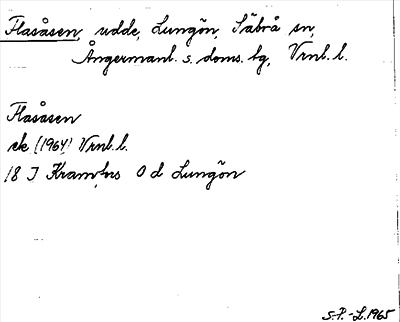 Flasåsen, udde, Lungön, Säbrå sn,
Ångermanl. s. doms. tg, Vrnl. l.
Flasåsen
ek (1964) Vrnl. l.
18 J Kramfors O d Lungön
S.-P. -L. 1965